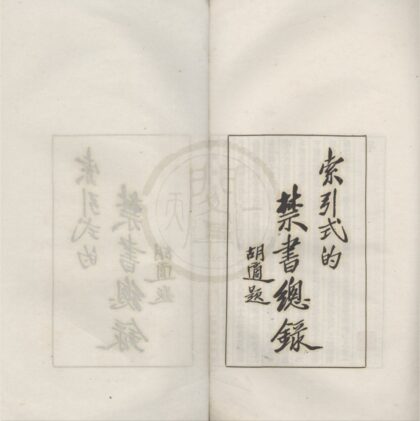 索引式的
禁書總錄
胡適題